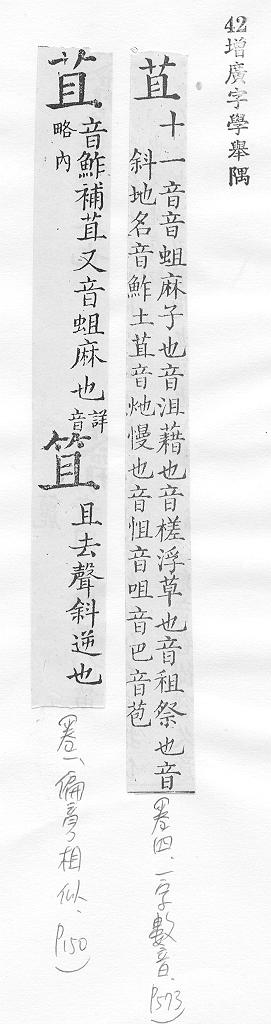 42增廣字學舉隅
苴 十一音音蛆麻子也音沮藉也音槎浮草也音租祭也音
斜地名音鮓土苴音灺慢也音怚音咀音巴音苞
卷四、一字數音、P573)
苴 音鮓補苴又音蛆麻也詳音
略內
笡 且去聲斜逆也
卷一、偏旁相似、P150)